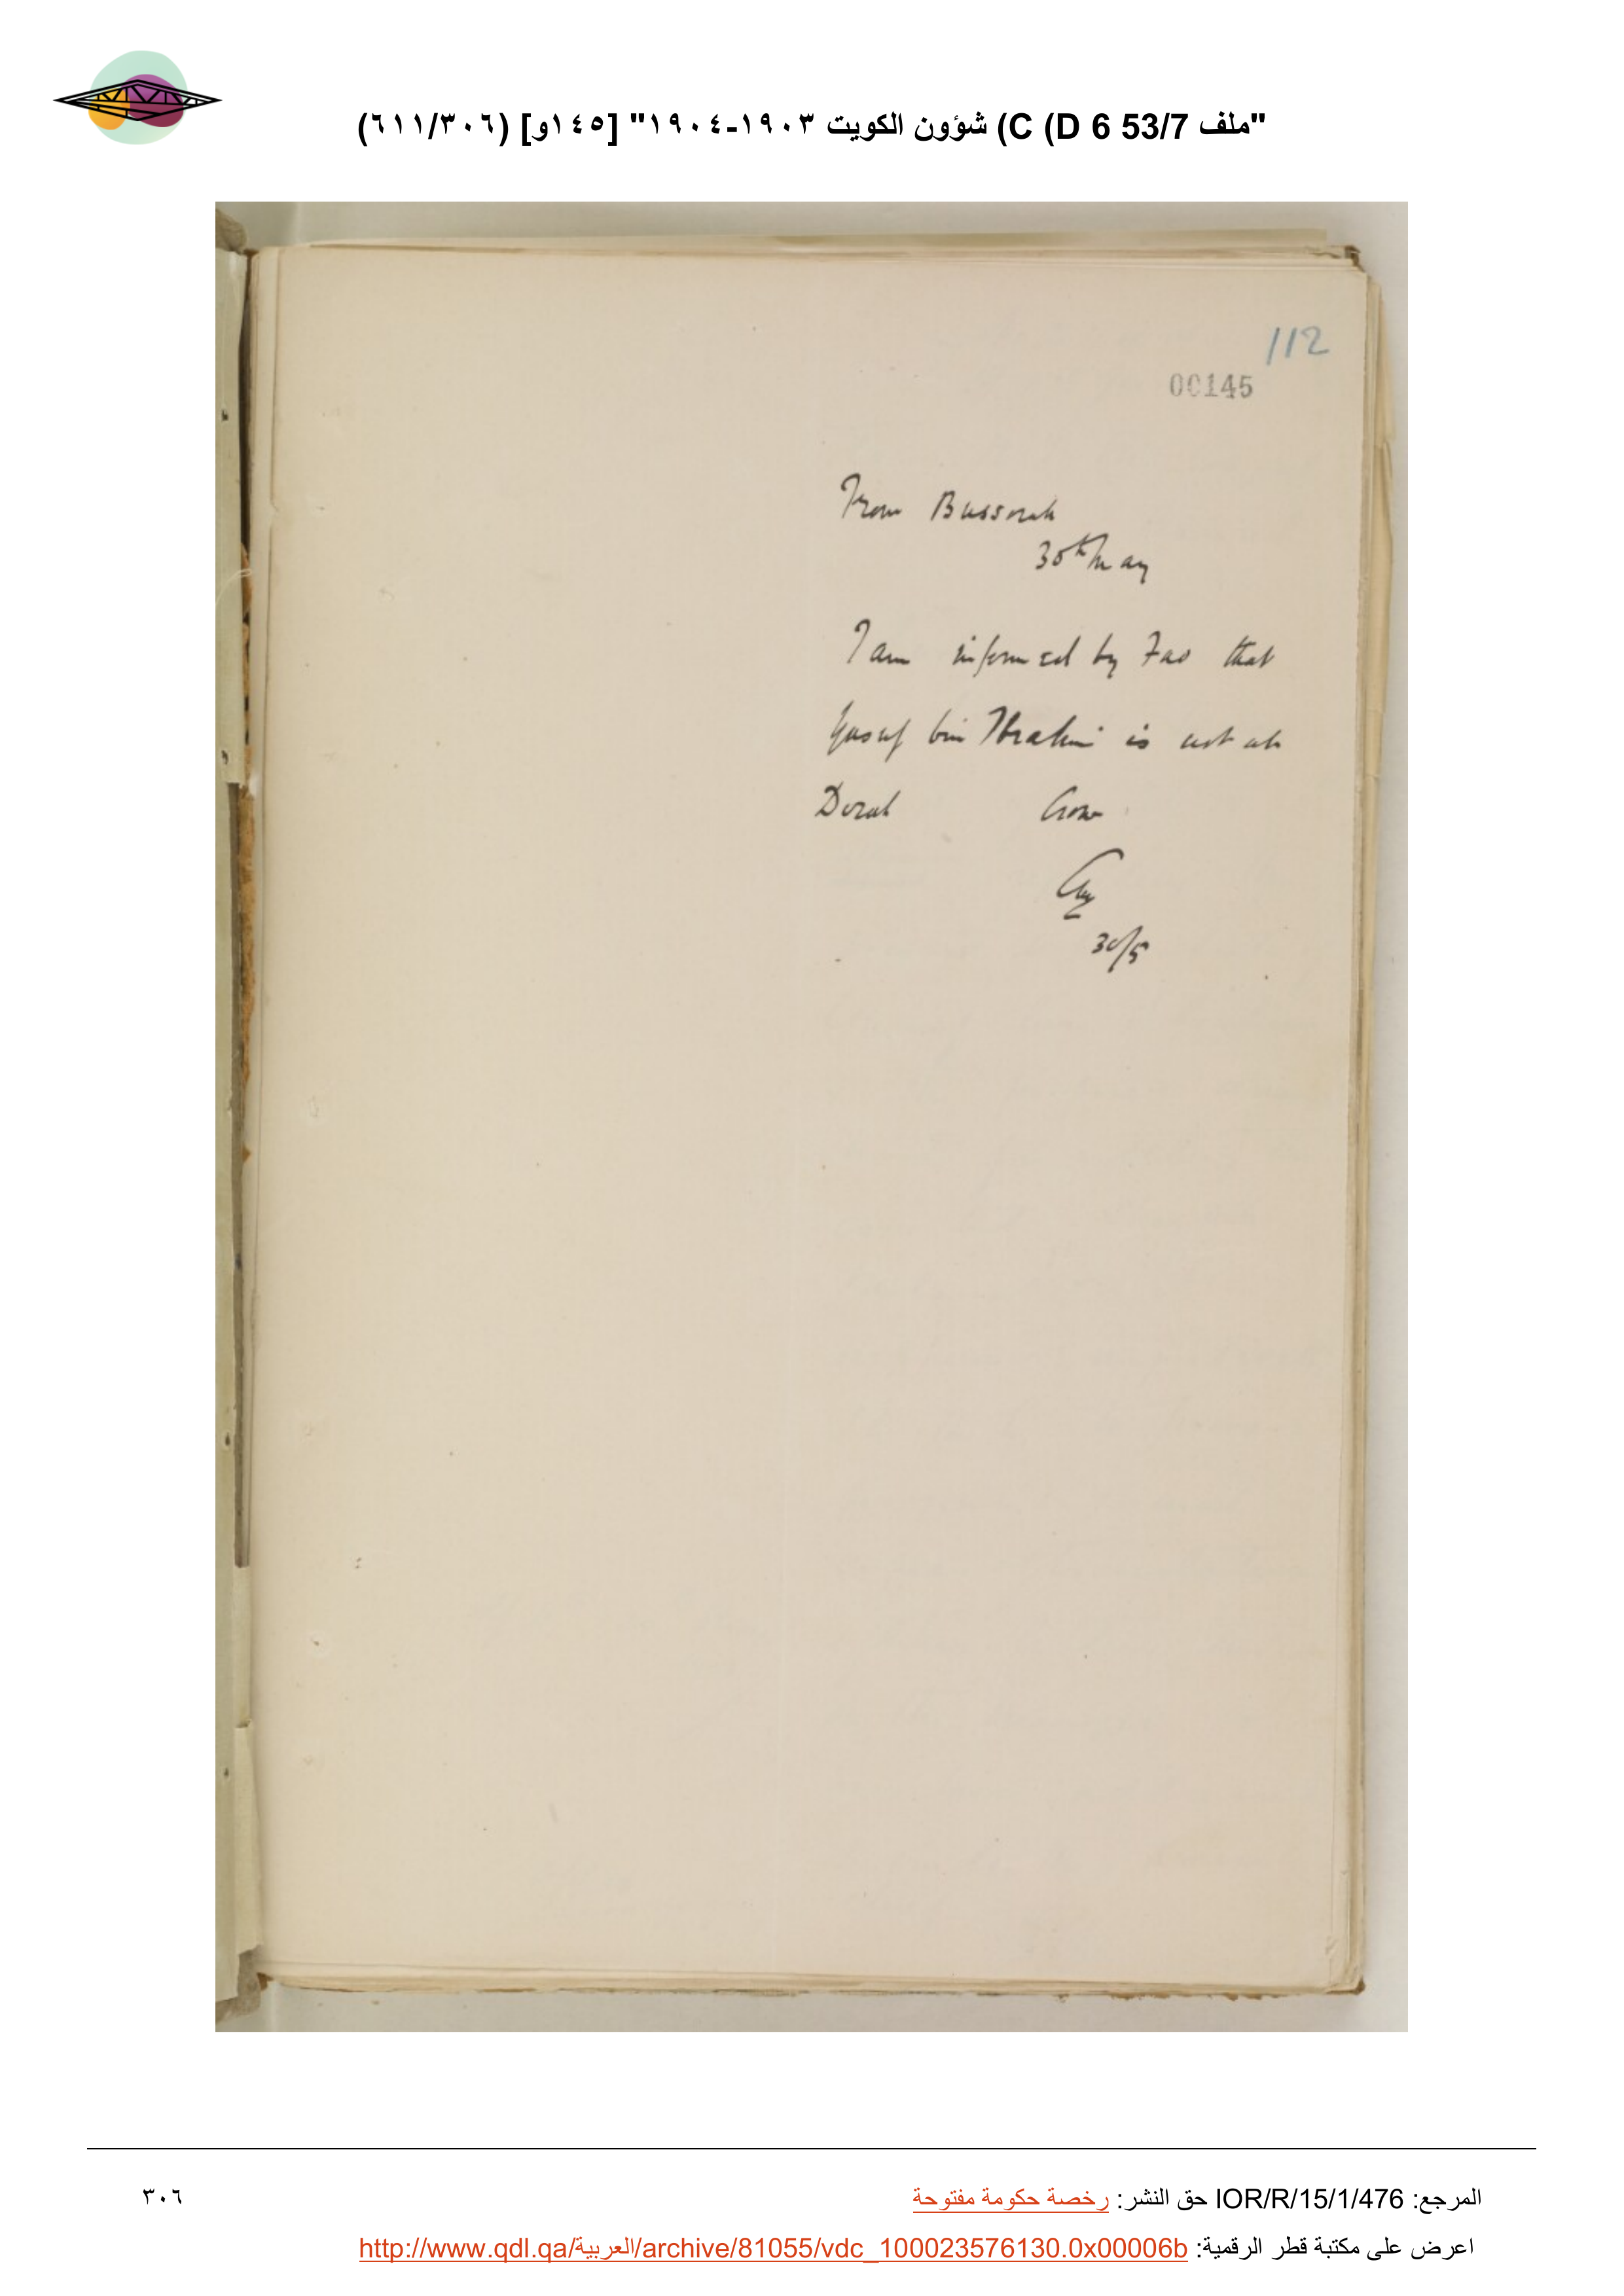 "ملف 53/7 C (D 6) شؤون الكويت ١٩٠٣-١٩٠٤" [١٤٥و] (٦١١/٣٠٦)
112
00145
From Bussorah
30th May
I am informed by Fao that
Yusuf bin Ibrahim is not at
Dorah Crow
30/5
المرجع: IOR/R/15/1/476 حق النشر: رخصة حكومة مفتوحة
٣٠٦
اعرض على مكتبة قطر الرقمية: http://www.qdl.qa/العربية/archive/81055/vdc_100023576130.0x00006b